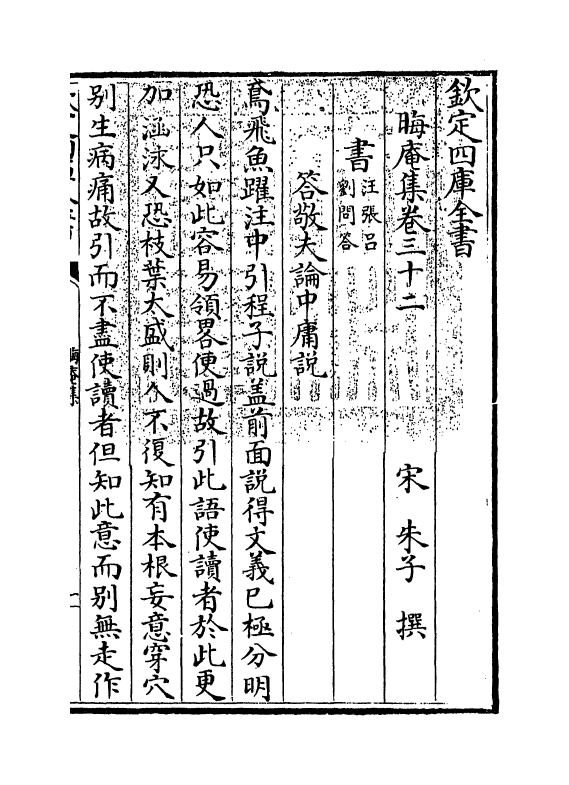 欽定四庫全書
晦庵集卷三十二
宋 朱子 撰
書
汪張呂
劉問答
答敬夫論中庸說
鳶飛魚躍注中引程子說盖前面說得文義已極分明
恐人只如此容易領畧便過故引此語使讀者於此更
加涵泳又恐枝葉太盛則人不復知有本根妄意穿穴
别生病痛故引而不盡使讀者但知此意而别無走作
晦庵集
一